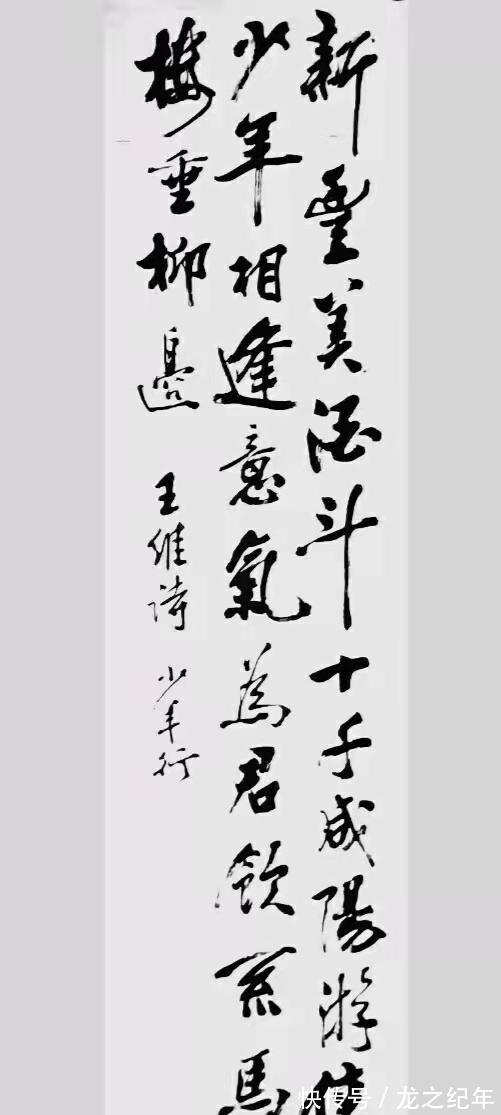 新豐美酒斗十千咸陽游
少年相逢意氣為君飲系馬
樓垂柳邊 王維詩 少年行
快传号／龙之纪年